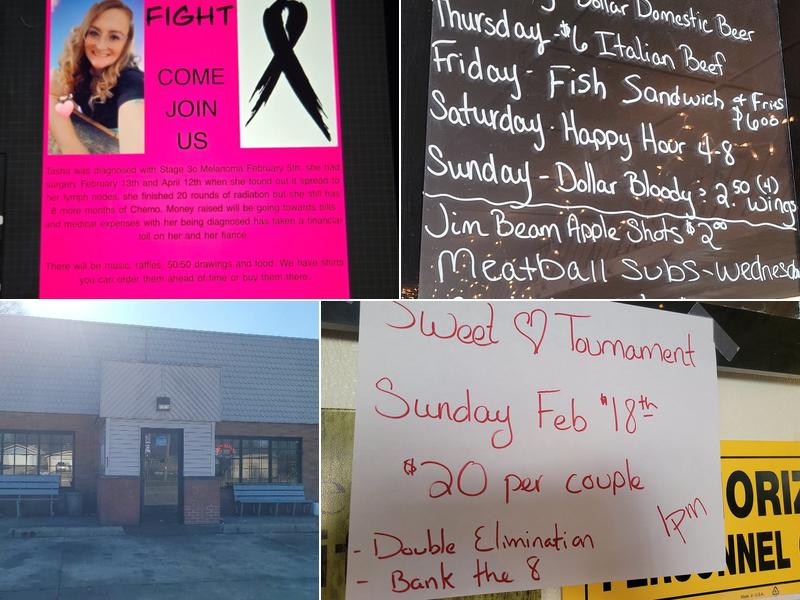 FIGHT
COME
JOIN
US
Tasha was diagnosed with Stage 3c Melanoma February 5th, she had
surgery February 13th and April 12th when she found out it spread to
her lymph nodes, she finished 20 rounds of radiation but she still has
8 more months of Chemo. Money raised will be going towards bills
and medical expenses with her being diagnosed has taken a financial
toll on her and her fiance.
There will be music, raffles, 50/50 drawings and food. We have shirts
you can order them ahead of time or buy them there.
Dollar Domestic Beer
Thursday - $6 Italian Beef
Friday - Fish Sandwich & Fries
$6.00
Saturday - Happy Hour 4-8
Sunday - Dollar Bloody's 2.50 (4)
Wings
Jim Beam Apple Shots $2.00
Meatball Subs - Wednesda
Sweet ♡ Tournament
Sunday Feb 18th
$20 per couple
1pm
- Double Elimination
- Bank the 8
ORIZ
PERSONNEL